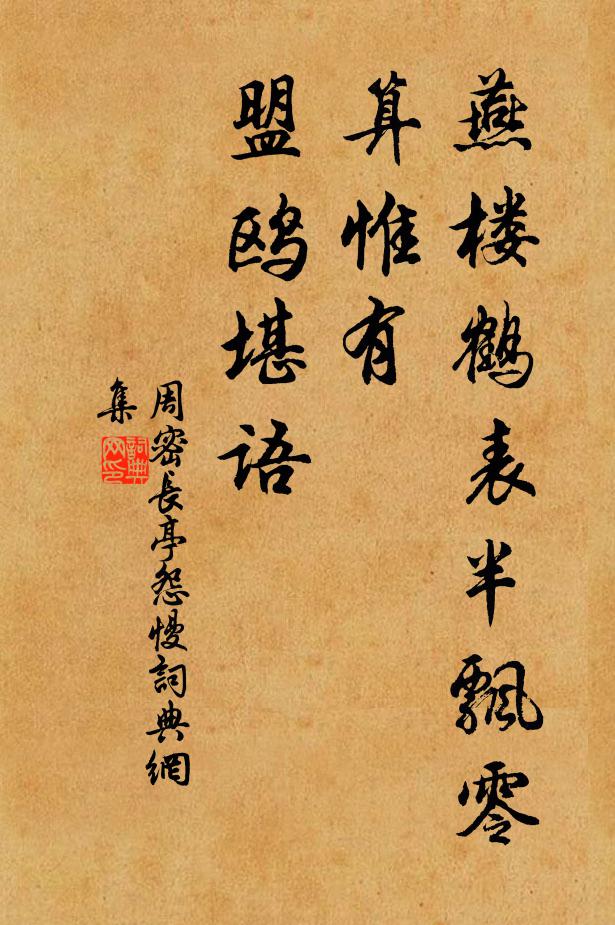 燕楼鹤表半飘零
算惟有
盟鸥堪语
周密長亭怨慢詞典網
集
詞典網印